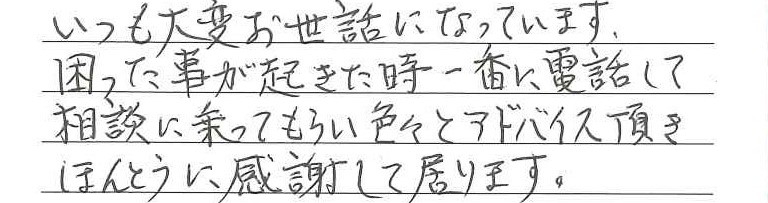 いつも大変お世話になっています、
困った事が起きた時一番に電話して
相談に乗ってもらい色々とアドバイス頂き
ほんとうに感謝して居ります。